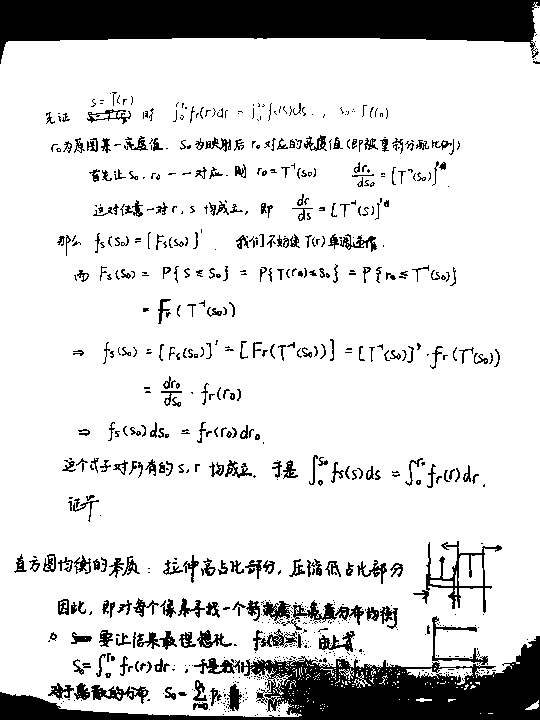 先证 s = T(r) 时 ∫₀^{r₀} fr(r)dr = ∫₀^{s₀} fs(s)ds. , s₀ = T(r₀)
r₀为原图某一亮度值. S₀为映射后 r₀对应的亮度值 (即被重新分配比例)
首先让 S₀, r₀ 一一对应. 则 r₀ = T⁻¹(s₀) dr₀/ds₀ = [T⁻¹(s₀)]'
这对任意一对 r, s 均成立, 即 dr/ds = [T⁻¹(s)]'
那么 fs(s₀) = [Fs(s₀)]'. 我们不妨使 T(r) 单调递增.
而 Fs(s₀) = P{s ≤ s₀} = P{T(r₀) ≤ s₀} = P{r₀ ≤ T⁻¹(s₀)}
= Fr(T⁻¹(s₀))
⇒ fs(s₀) = [Fs(s₀)]' = [Fr(T⁻¹(s₀))] = [T⁻¹(s₀)]' · fr(T⁻¹(s₀))
= dr₀/ds₀ · fr(r₀)
⇒ fs(s₀)ds₀ = fr(r₀)dr₀.
这个式子对所有的 s, r 均成立. 于是 ∫₀^{s₀} fs(s)ds = ∫₀^{r₀} fr(r)dr.
证毕.
直方图均衡的本质: 拉伸高占比部分, 压缩低占比部分
因此, 即对每个像素寻找一个新亮度让亮度分布均衡
要让结果最理想化. fs(s)=1. 由上有
S₀ = ∫₀^{r₀} fr(r)dr. , 于是我们
对于离散的分布. S₀ =